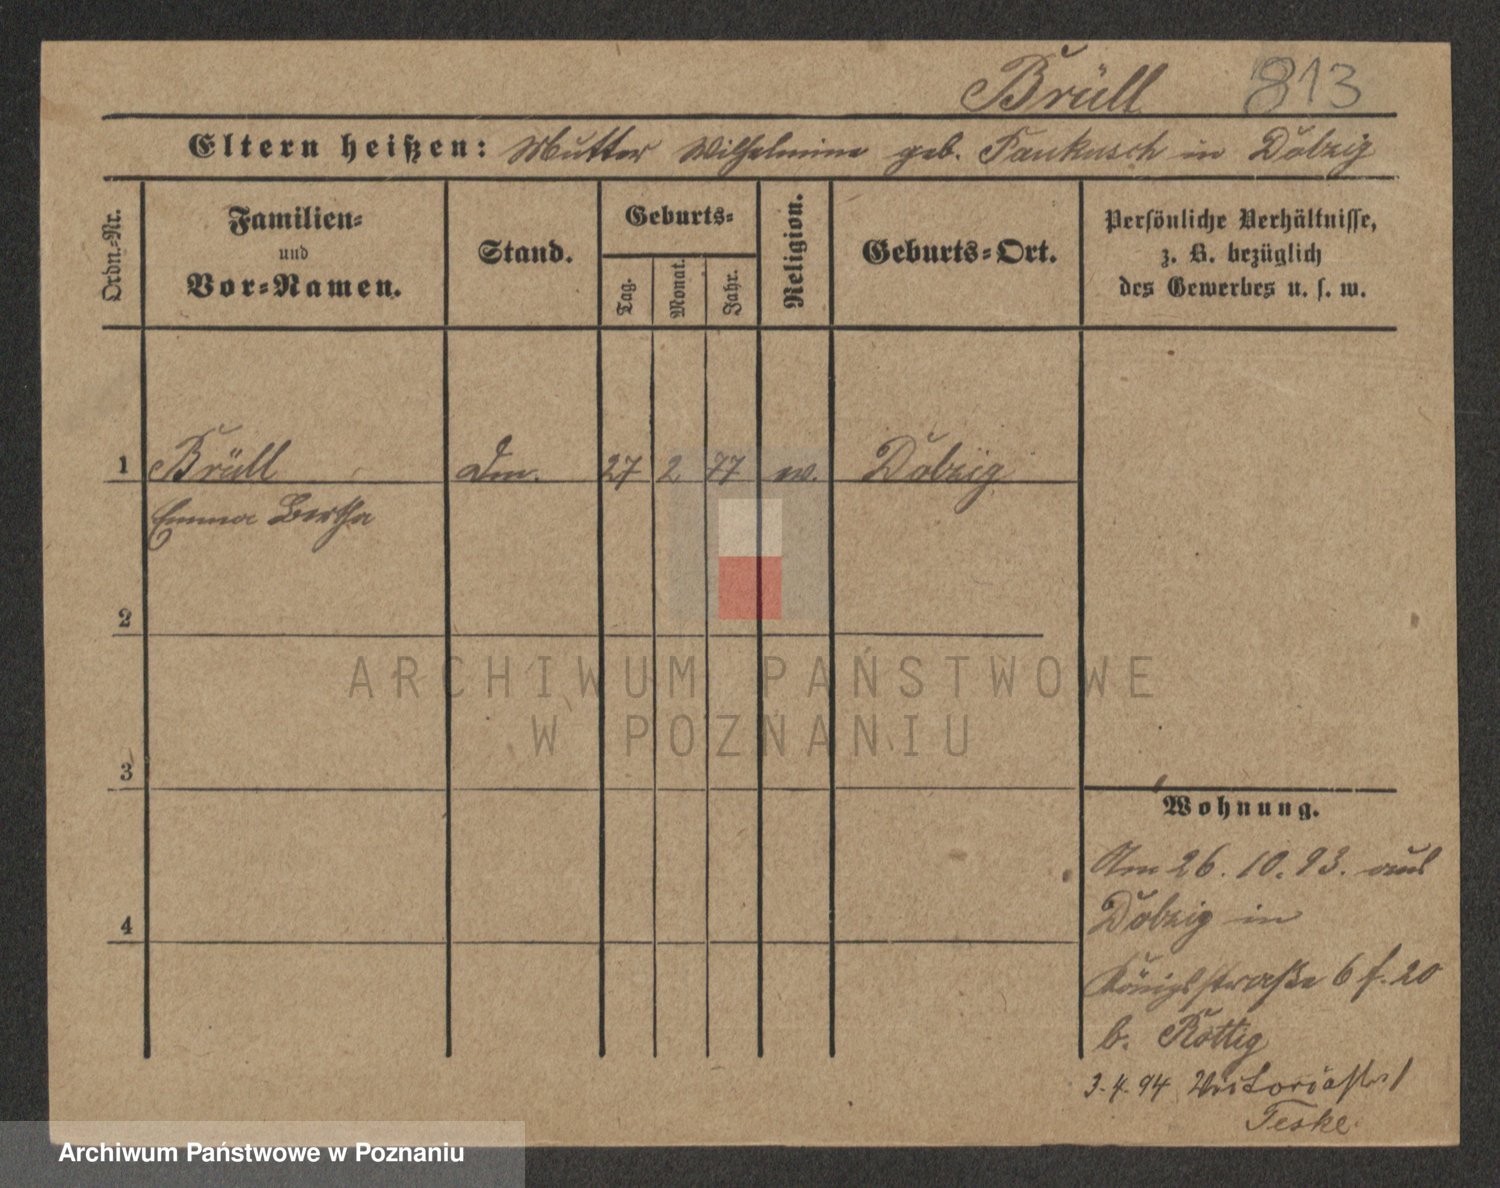 Brüll 813
Eltern heißen: Mutter Wilhelmine geb. Paukusch in Dobzig
Ordn.-Nr.
Familien-
und
Vor-Namen.
Stand.
Geburts-
Tag.
Monat.
Jahr.
Religion.
Geburts-Ort.
Persönliche Verhältnisse,
z. B. bezüglich
des Gewerbes u. s. w.
1 Brüll 27 2 77 ev. Dobzig
Emma Bertha
2
3
4
Wohnung.
Am 26. 10. 93. aus
Dobzig in
Königsstraße 6 f. 20
b. Rottig
3.4.94 Victoriastr 1
Teske
ARCHIWUM PAŃSTWOWE
W POZNANIU
Archiwum Państwowe w Poznaniu